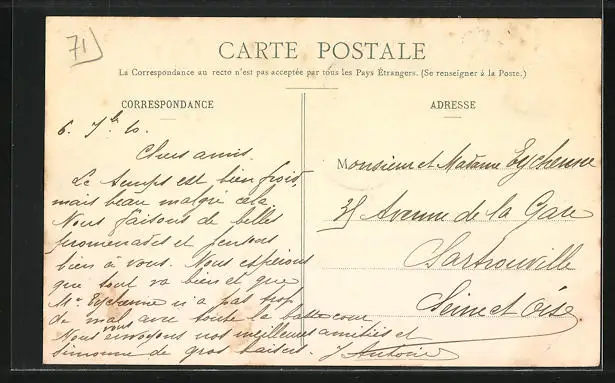 71
CARTE POSTALE
La Correspondance au recto n'est pas acceptée par tous les Pays Étrangers. (Se renseigner à la Poste.)
CORRESPONDANCE
6. 7bre 10.
Chers amis.
Le temps est bien frois,
mais beau malgré cela.
Nous faisons de belles
promenades et pensons
bien à vous. Nous espérons
que tout va bien et que
Me Eychenne n'a pas trop
de mal avec toute la basse cour
Nous vous envoyons nos meilleures amitiés et
Simonne de gros baisers. J Antoine
ADRESSE
Monsieur et Madame Eychenne
35 Avenue de la Gare
Sartrouville
Seine et Oise